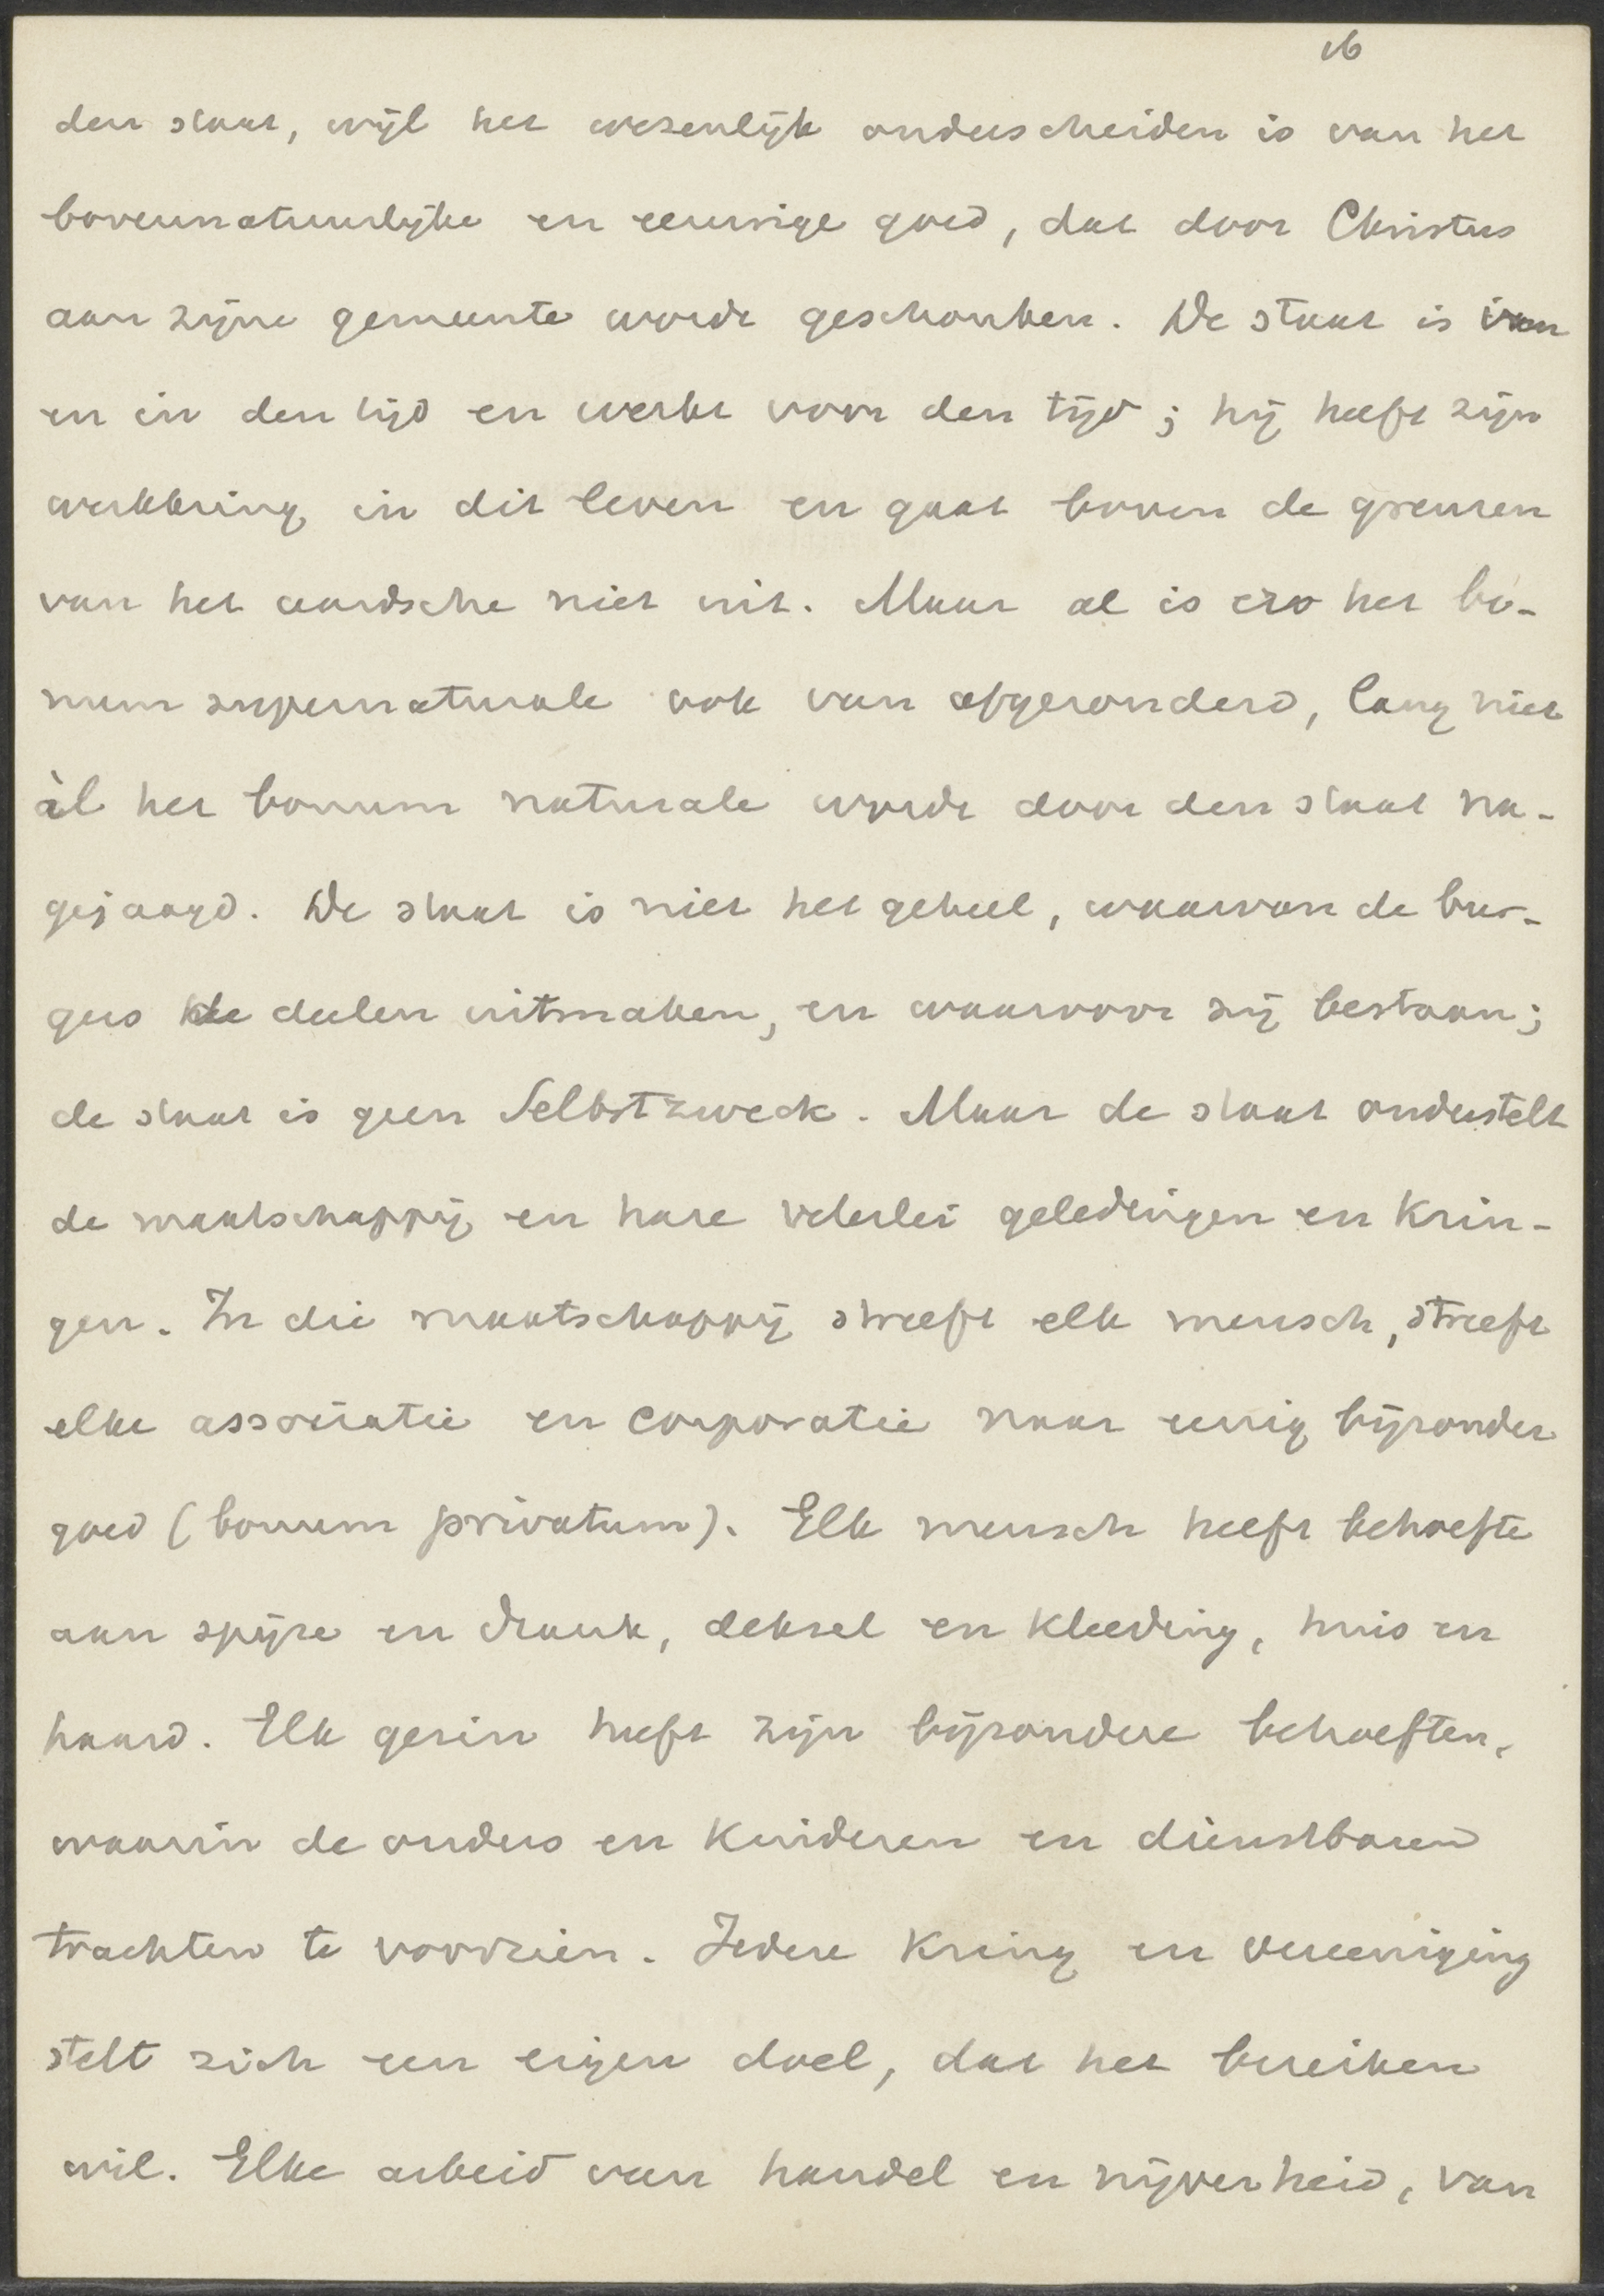 16
den staat, wijl het wezenlijk onderscheiden is van het
bovennatuurlijke en eeuwige goed, dat door Christus
aan zijne gemeente wordt geschonken. De staat is van
en in den tijd en werkt voor den tijd; hij heeft zijn
werkkring in dit leven en gaat boven de grenzen
van het aardsche niet uit. Maar al is er het bo-
num supernaturale ook van afgezonderd, lang niet
àl het bonum naturale wordt door den staat na-
gejaagd. De staat is niet het geheel, waarvan de bur-
gers de deelen uitmaken, en waarvoor zij bestaan;
de staat is geen Selbstzweck. Maar de staat onderstelt
de maatschappij en hare velerlei geledingen en krin-
gen. In die maatschappij streeft elk mensch, streeft
elke associatie en corporatie naar eenig bijzonder
goed (bonum privatum). Elk mensch heeft behoefte
aan spijze en drank, deksel en kleeding, huis en
haard. Elk gezin heeft zijn bijzondere behoeften,
waarin de ouders en kinderen en dienstbaren
trachten te voorzien. Iedere kring en vereeniging
stelt zich een eigen doel, dat het bereiken
wil. Elke arbeid van handel en nijverheid, van